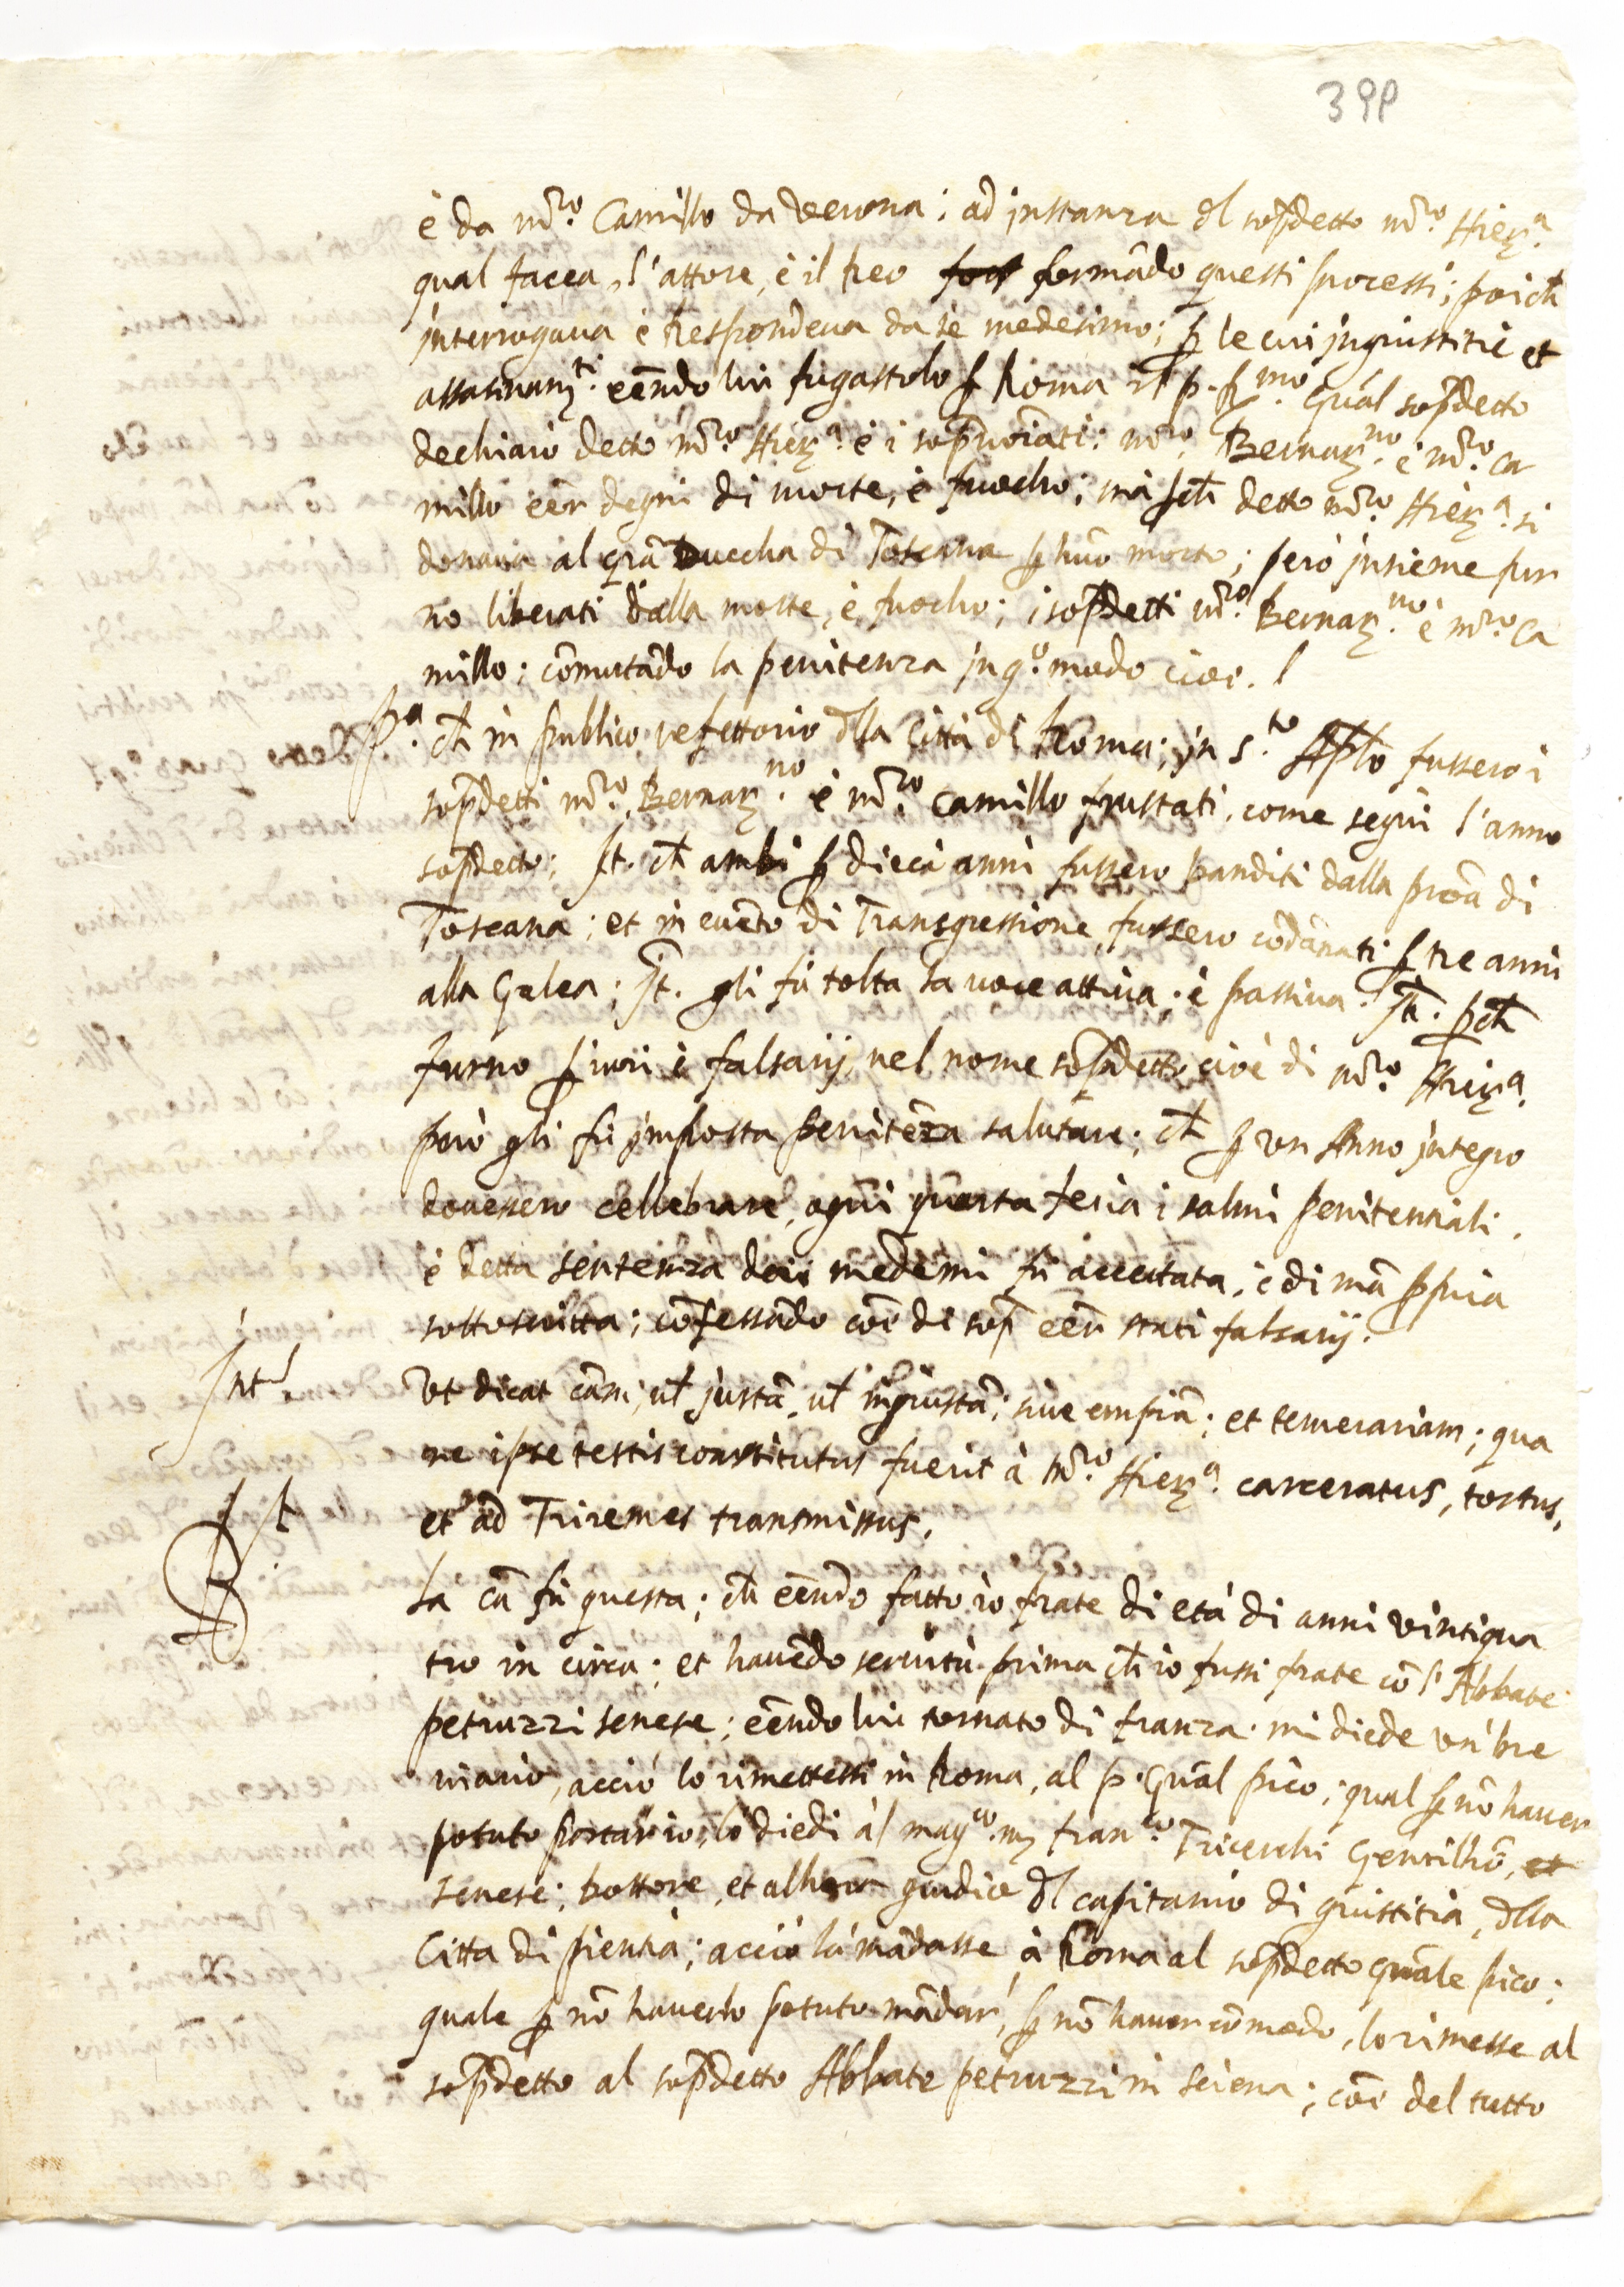 399
è da mro. Camillo da Verona; ad instanza dl sopdetto mro. Hiera.
qual facea, l'attore, è il Reo formãdo questi processi; poich
interrogaua è Respondeua da se medesimo; p le cui ingiustitie et
assassinamti. eẽndo lui fugastolo p Roma il p. Rmo. Gñal sopdetto
dechiarò detto mro. Hiera. è i sopnoiati: mro. Bernarno. è mro. Ca
millo eẽr degni di morte, è fuocho; mà pch detto mro. Hiera. si
donaua al grã Duccha di Toscana p huõ morto; però insieme fur
no liberati dalla morte, è fuocho; i sopdetti mro. Bernarno. è mro. Ca
millo; cõmutãdo la penitenza in qo. modo cioè.
Pa. ch in publico refettorio dlla Città di Roma; in sto Aplo fussero i
sopdetti mro. Bernarno. è mro. Camillo frustati, come seguì l'anno
sopdetto; It. ch ambi p dieci anni fussero banditi dalla proã di
Toscana; et in euẽto di Transgressione, fussero cõdãnati p tre anni
alla Galea; It. gli fù tolta la uoce attiua; è passiua. It. pch
furno piuri è falsarij, nel nome sopdetto, cioè di mro. Hiera.
però gli fù imposta penitẽza salutare; ch p vn Anno integro
douessero cellebrare, ogni quarta feria i salmi penitentiali.
è detta sentenza dai medemi fù accettata, è di mã ppria
sottoscritta; cõfessãdo coẽ di sop eẽr stati falsarij.
Intr. Vt dicat cãm, ul justã, ul ingiustã; siue empiã; et temerariam; qua
ne ipse testis constitutus fuerit à mro. Hiera. carceratus, tortus,
et ad Triremes transmissus.
R La cã fù questa; ch eẽndo fatto io frate di età di anni vintiqua
tro in circa; et hauẽdo seruitù prima ch io fussi frate cõ l'Abbate
petruzzi senese; eẽndo lui tornato di franza. mi diede vn' bre
uiario, acciò lo rimettessi in Roma, al p. Gñal pico; qual p nõ hauer
potuto portar io, lo diedi àl magco. m. franco. Tricerchi Gentilhõ,
senese; Dottore, et alhora giudice dl capitanio di giustitia, dlla
Citta di pienza; acciò lù mãdasse à Roma al sopdetto gñale pico;
quale p nõ hauerlo potuto mãdar', p nõ hauer cõmodo, lo rimesse al
sopdetto al sopdetto Abbate petruzzi in seiena; coẽ del tutto